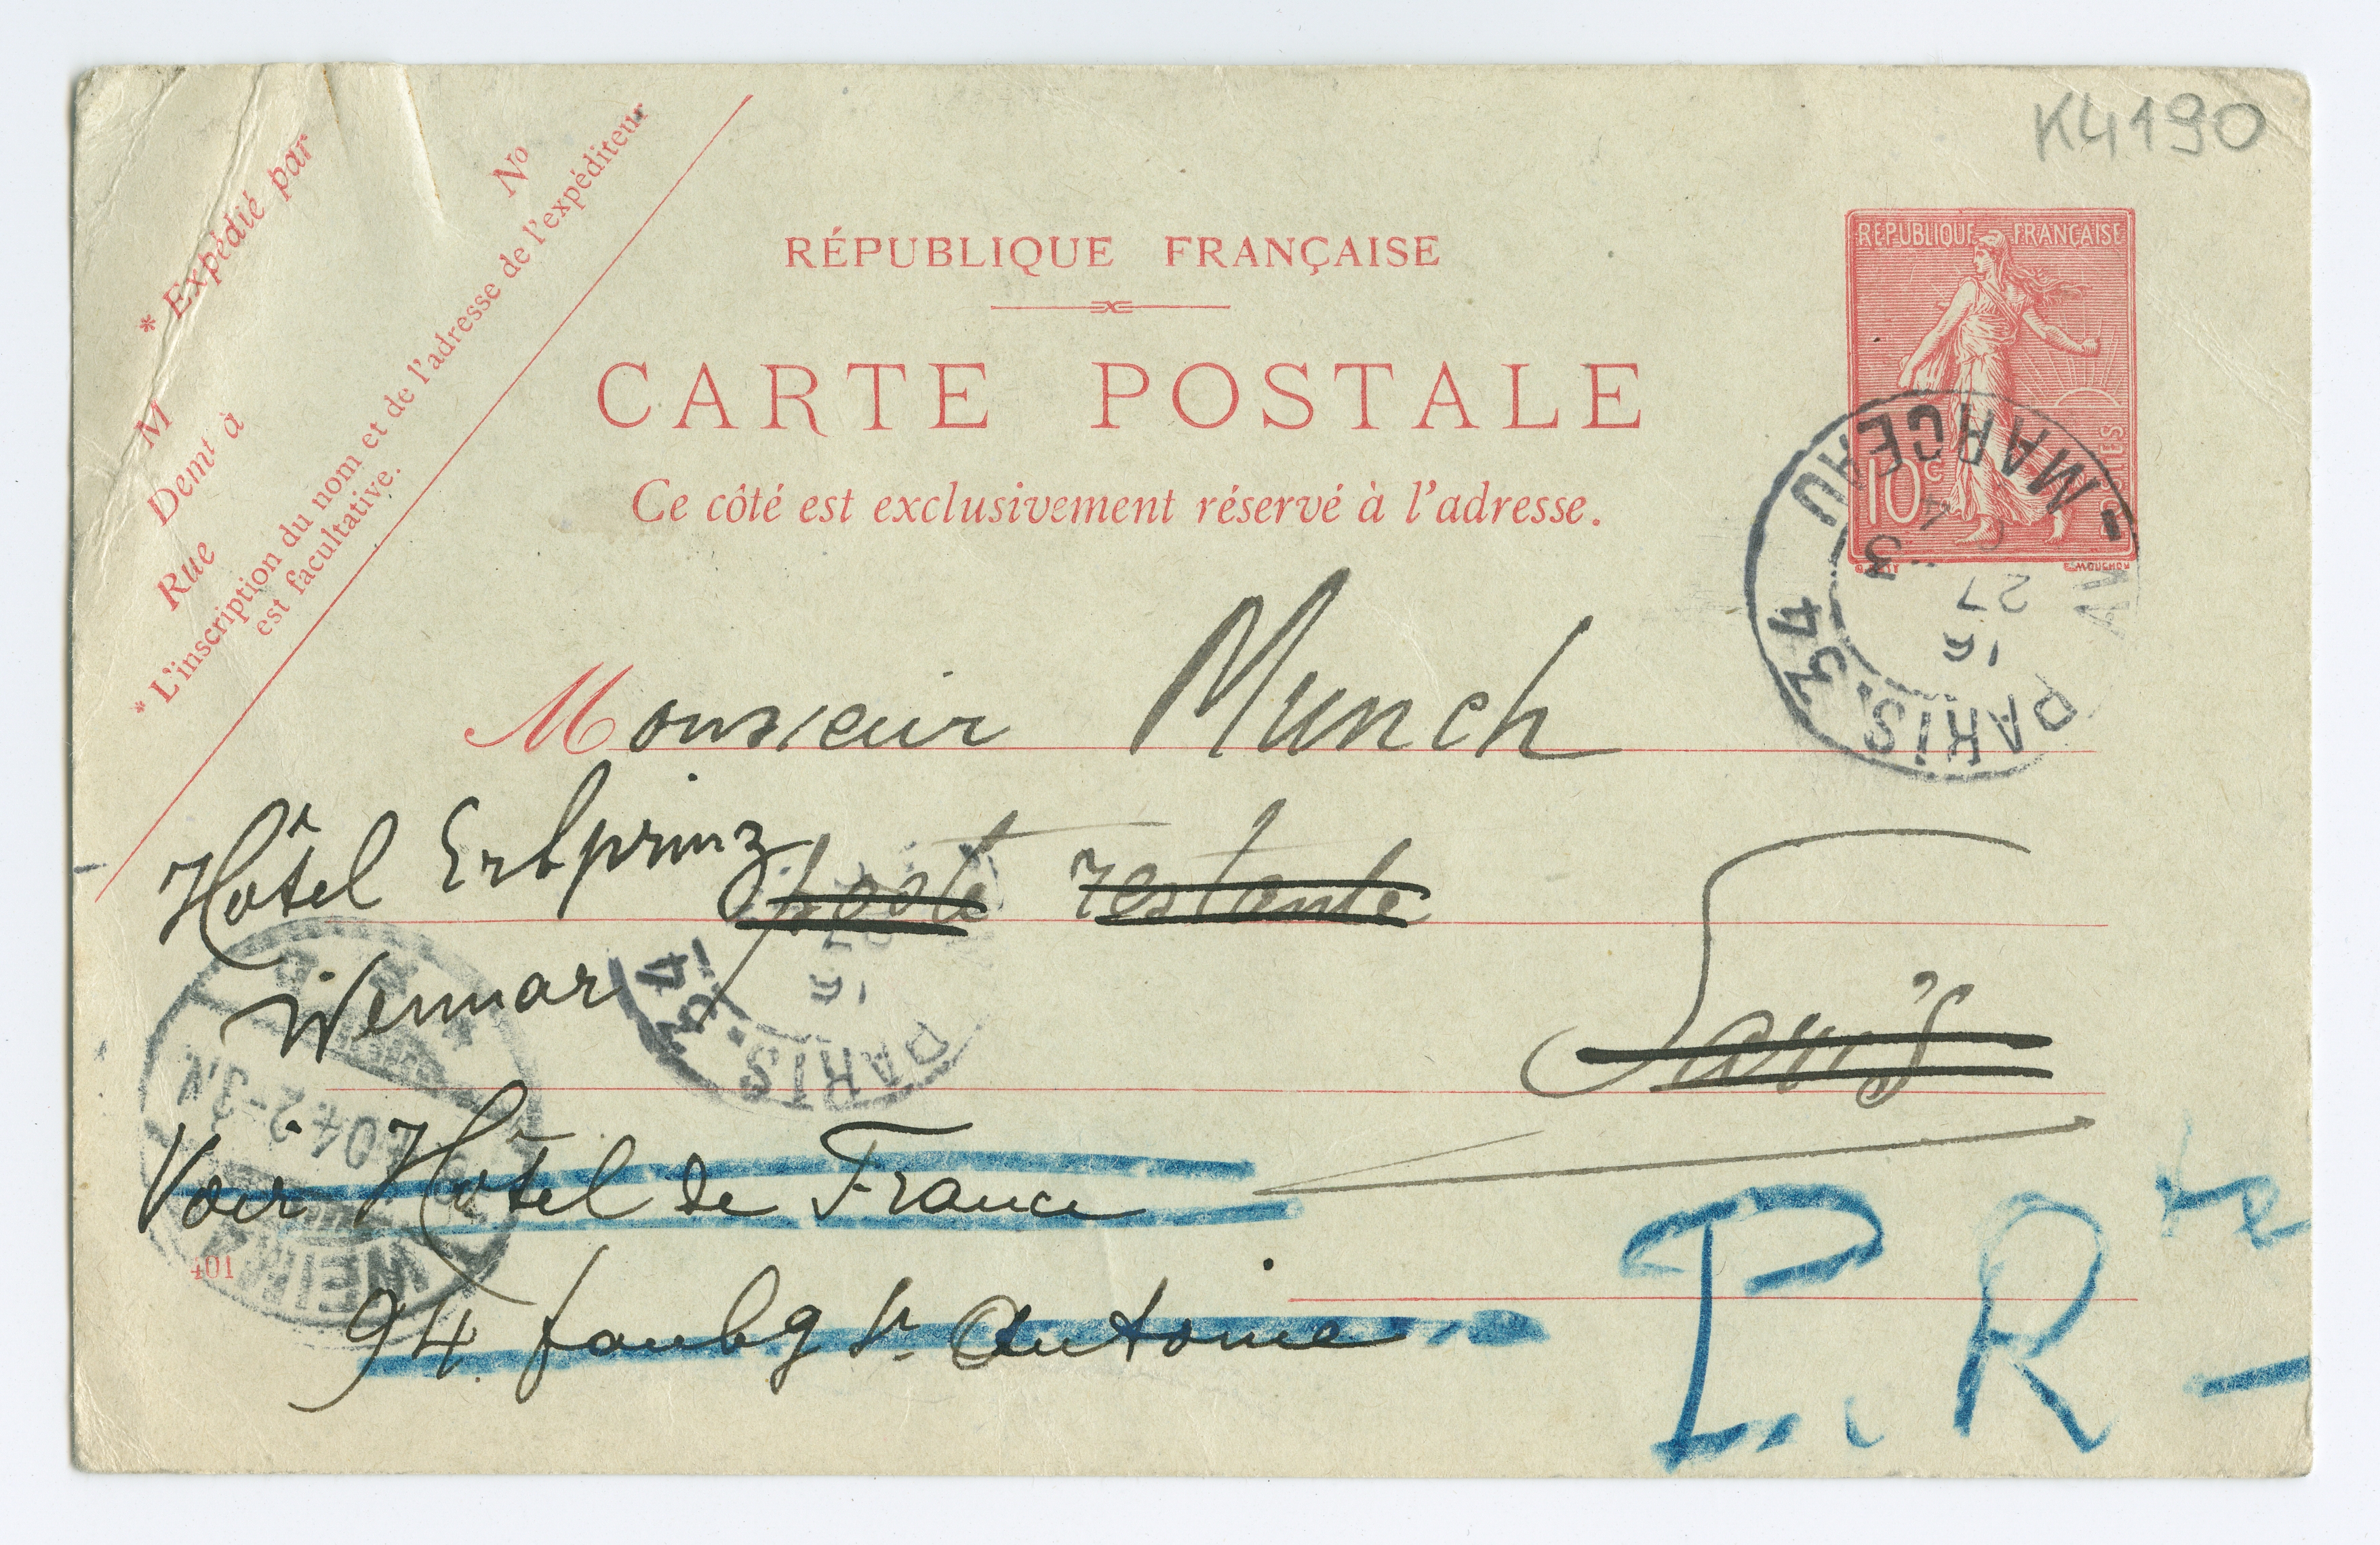 K4190
* Expédié par
M
Demt à
Rue
No
* L'inscription du nom et de l'adresse de l'expéditeur
est facultative.
RÉPUBLIQUE FRANÇAISE
CARTE POSTALE
Ce côté est exclusivement réservé à l'adresse.
REPUBLIQUE FRANÇAISE
POSTES
10c
E. MOUCHON
PARIS. 34
AV. MARCEAU
3
27
Monsieur Munch
Hôtel Erbprinz poste restante
Weimar
Paris
Voir Hôtel de France
94 faubg St Antoine
P. Rte
PARIS. 34
WEIMAR
04 2-3N
401